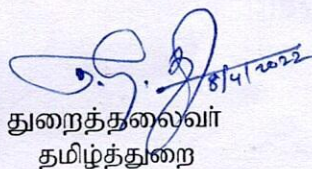 8/4/2022
துறைத்தலைவர்
தமிழ்த்துறை